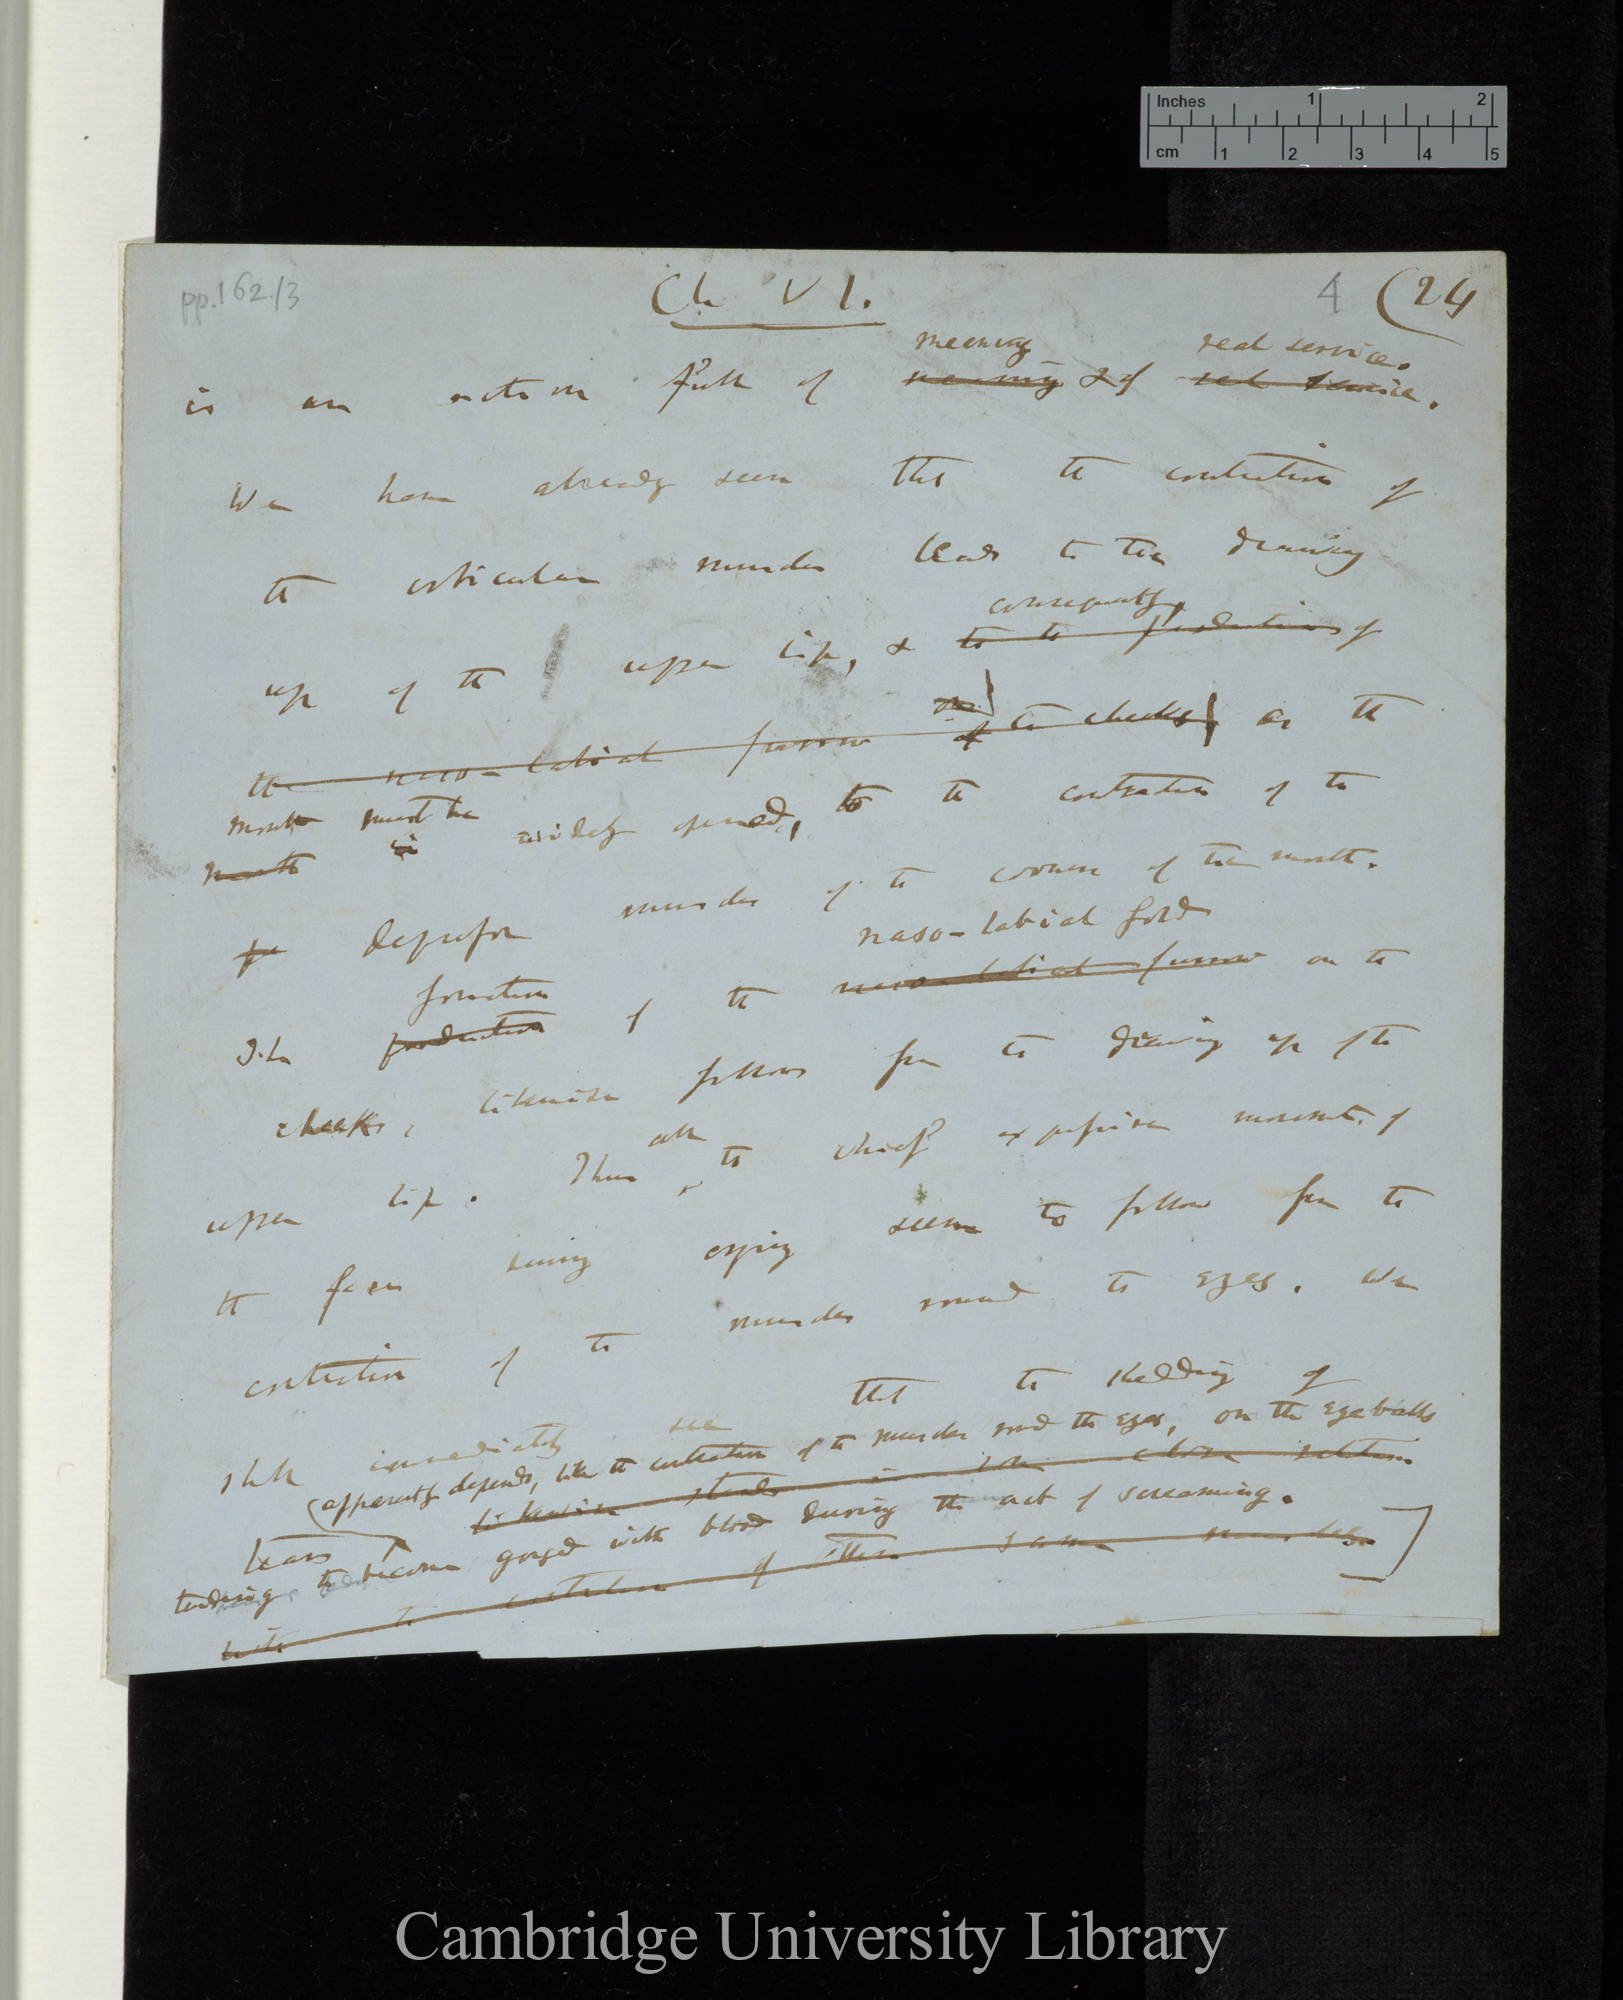 Inches 1 2
cm 1 2 3 4 5
pp. 162/3
Ch VI.
4 (24
meaning real service.
is an action full of meaning & of real service.
We have already seen that the contraction of
the orbicular muscles leads to the drawing
consequently
up of the upper lip, & to the production of
on
the naso-labial furrow of the cheeks, as the
mouth must be
mouth is widely opened, to the contraction of the
depressor muscles of the corners of the mouth.
formation naso-labial fold
The production of the naso-labial furrow on the
cheeks, likewise follows from the drawing up of the
all
upper lip. Thus the chief expressive movements of
the face during crying seem to follow from the
contraction of the muscles round the eyes. We
shall immediately see that the shedding of
apparently depends, like the contraction of the muscles round the eyes, on the eyeballs
tears likewise stands in some close relation
tending to become gorged with blood during the act of screaming.
with the contraction of these same muscles.
Cambridge University Library